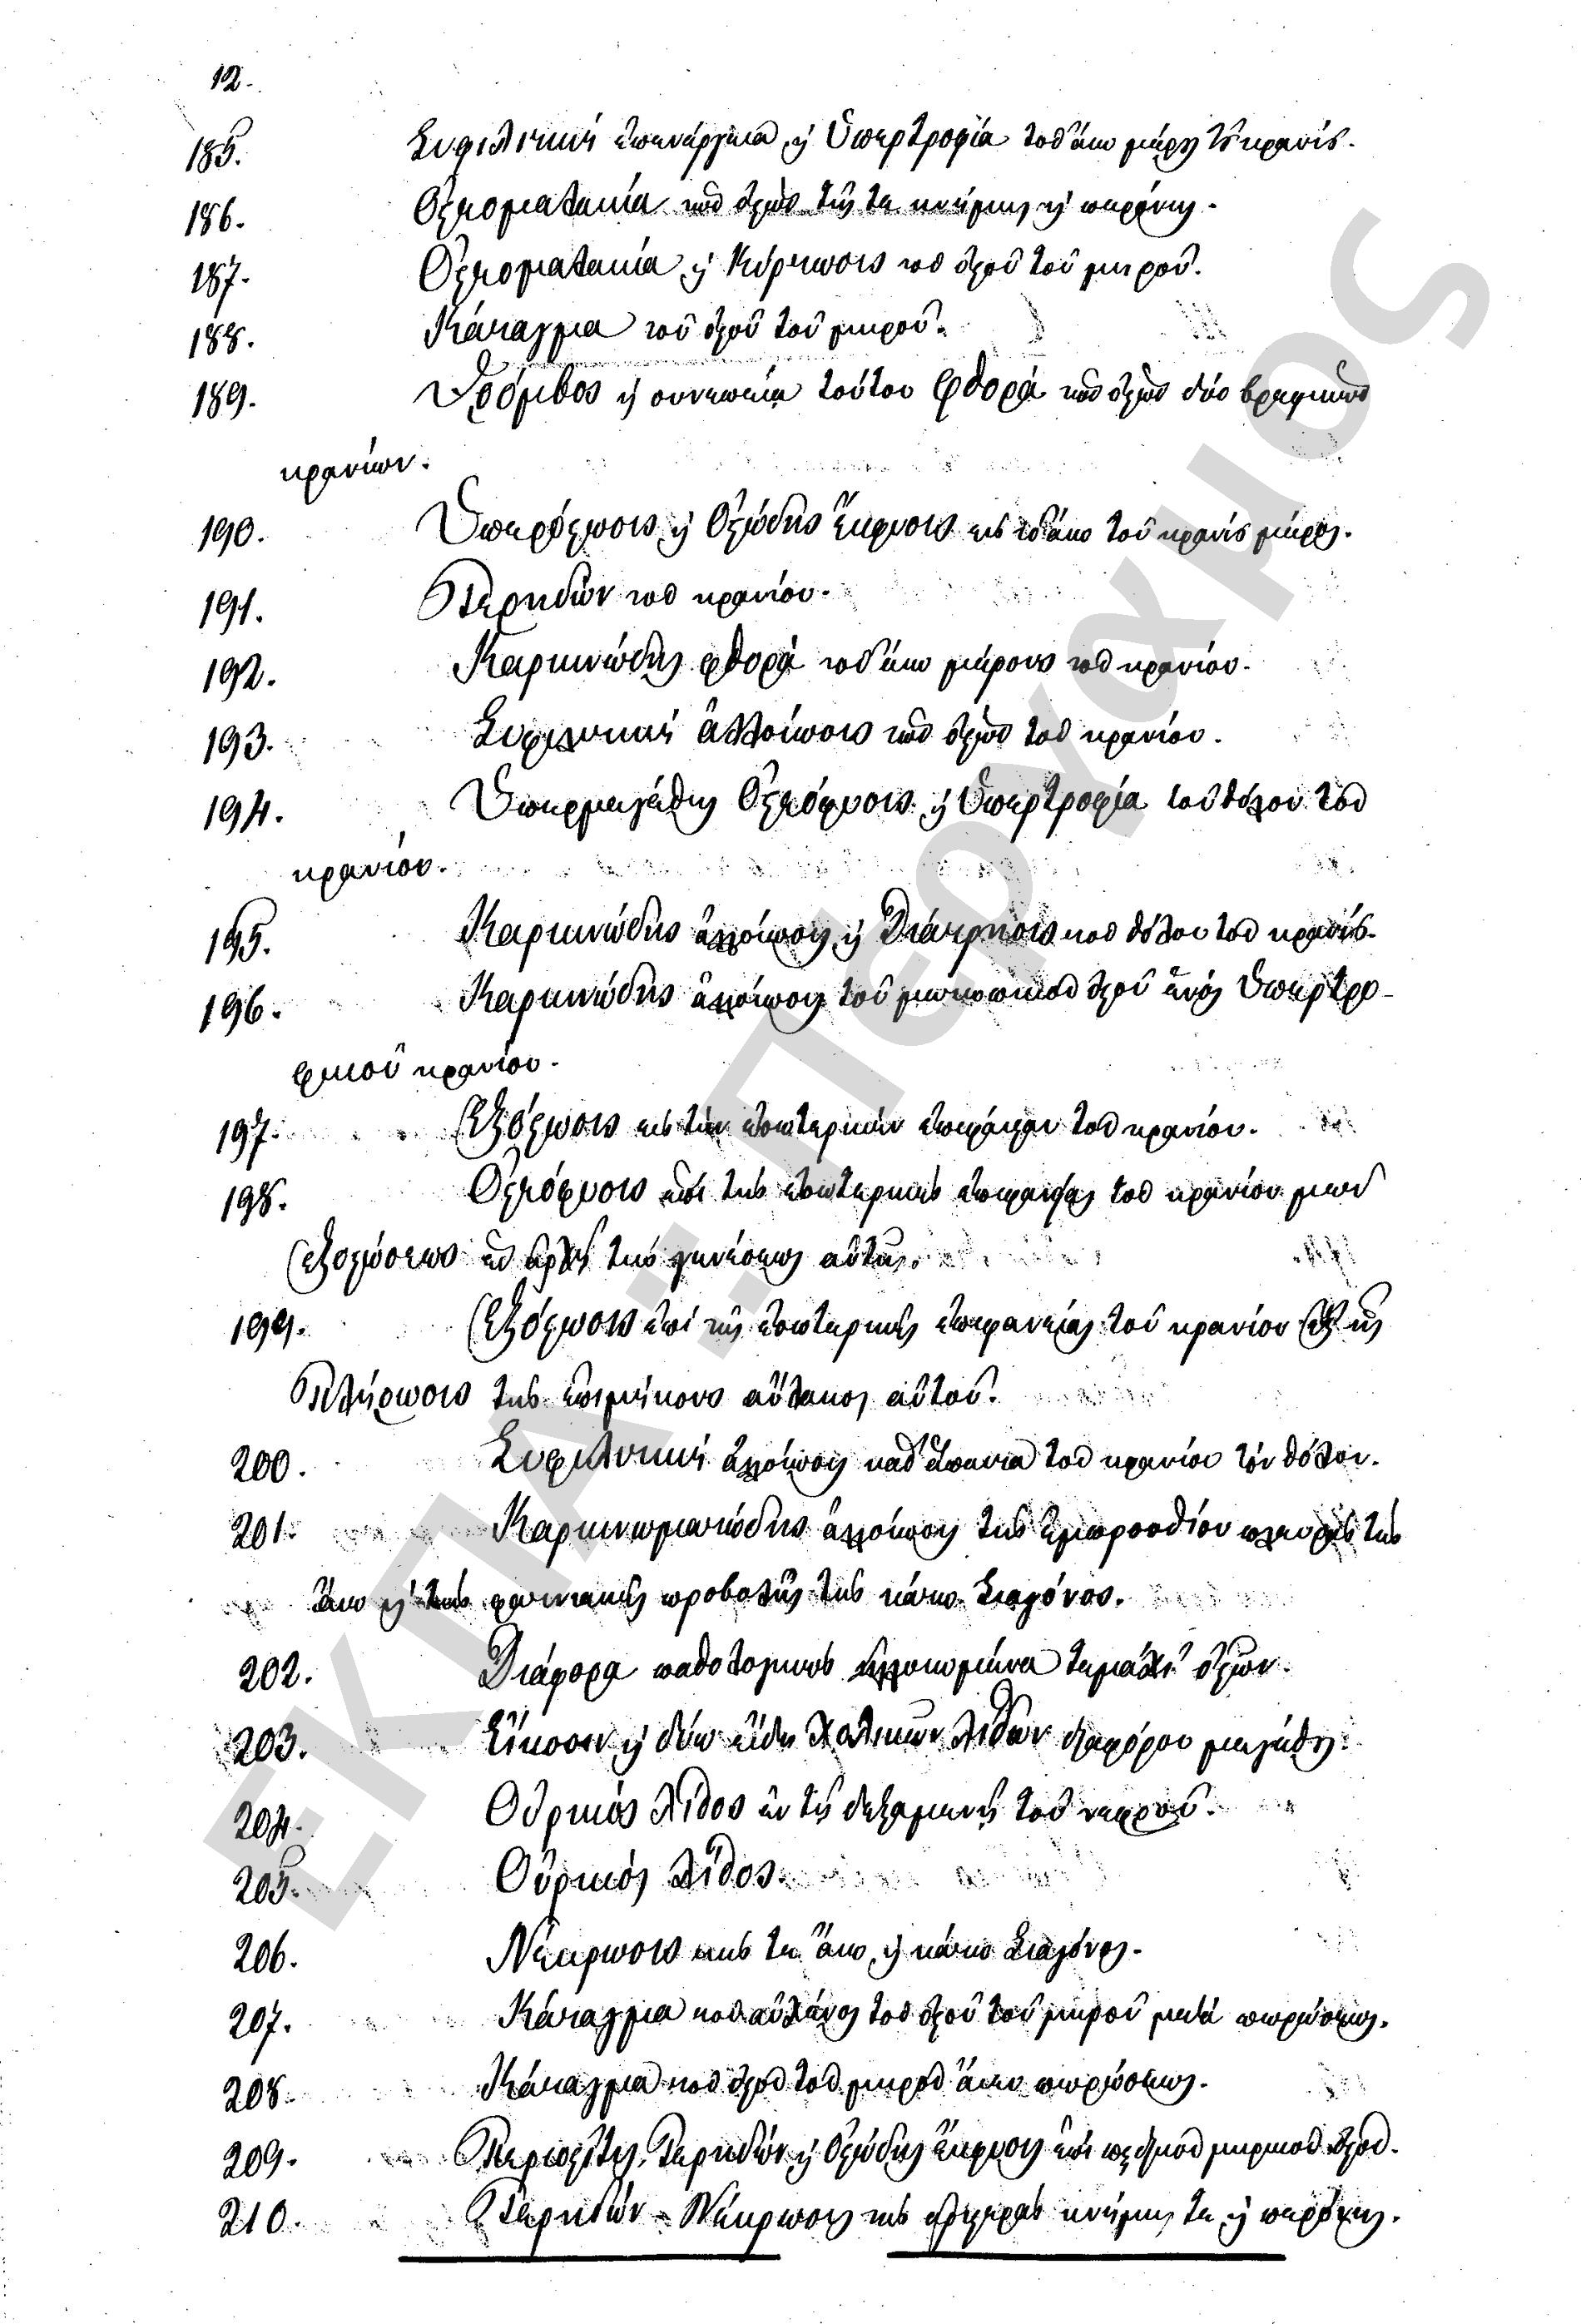 12.
185. Συφιλιτική ἐπενέργεια ἢ Ὑπερτροφία τοῦ ἄνω μέρ τοῦ κρανίου.
186. Ὀστεομαλακία τῶν ὀστῶν τῆς τε κνήμης καὶ περόνης.
187. Ὀστεομαλακία ἢ Κύρτωσις τοῦ ὀστοῦ τοῦ μηροῦ.
188. Κάταγμα τοῦ ὀστοῦ τοῦ μηροῦ.
189. Θρόμβος ἢ συνεπεία τούτου φθορά τῶν ὀστῶν δύο βρεφικῶν
κρανίων.
190. Ὑπερόστωσις ἢ Ὀστώδης Ἔκφυσις εἰς τὸ ἄνω τοῦ κρανίου μέρος.
191. Τερηδὼν τοῦ κρανίου.
192. Καρκινώδης φθορά τοῦ ἄνω μέρους τοῦ κρανίου.
193. Συφιλιτική ἀλλοίωσις τῶν ὀστῶν τοῦ κρανίου.
194. Ὑπερμεγέθης Ὀστεόφυσις ἢ Ὑπερτροφία τοῦ θόλου τοῦ
κρανίου.
195. Καρκινώδης ἀλλοίωσις ἢ Διάτρησις τοῦ θόλου τοῦ κρανίου.
196. Καρκινώδης ἀλλοίωσις τοῦ μετωπικοῦ ὀστοῦ ἑνός Ὑπερτρο-
φικοῦ κρανίου.
197. Ἐξόστωσις εἰς τὴν ἐσωτερικήν ἐπιφάνειαν τοῦ κρανίου.
198. Ὀστεόφυσις ἐπί τῆς ἐσωτερικῆς ἐπιφανείας τοῦ κρανίου μετά
Ἐξοστώσεως ἐν ἀρχῇ τῆς γενέσεως αὐτῆς.
199. Ἐξόστωσις ἐπί τῆς ἐσωτερικῆς ἐπιφανείας τοῦ κρανίου ἐξ ἧς
Πλήρωσις τῆς ἐπιμήκους αὔλακος αὐτοῦ.
200. Συφιλιτική ἀλλοίωσις καθ' ἅπαντα τοῦ κρανίου τόν θόλον.
201. Καρκινωματώδης ἀλλοίωσις τῆς ἐμπροσθίου πλευρᾶς τῆς
ἄνω καὶ τῆς φατνιακῆς προβολῆς τῆς κάτω Σιαγόνος.
202. Διάφορα παθολογικῶς ἀλλοιωμένα τεμάχια ὀστῶν.
203. Εἴκοσιν ἢ δύω εἴδη Χολικῶν Λίθων διαφόρου μεγέθους.
204. Οὐρικός Λίθος ἐν τῇ δεξαμενῇ τοῦ νεφροῦ.
205. Οὐρικός Λίθος.
206. Νέκρωσις τῆς τε ἄνω ἢ κάτω Σιαγόνος.
207. Κάταγμα τοῦ αὐχένος τοῦ ὀστοῦ τοῦ μηροῦ μετά πωρώσεως.
208. Κάταγμα τοῦ ὀστοῦ τοῦ μηροῦ ἄνευ πωρώσεως.
209. Περιοστίτις, Τερηδὼν ἢ Ὀστώδης Ἔκφυσις ἐπί μηρικοῦ ὀστοῦ.
210. Τερηδὼν - Νέκρωσις τῆς ἀριστερᾶς κνήμης τε ἢ περόνης.
ΕΚΠΑ:Περγαμος